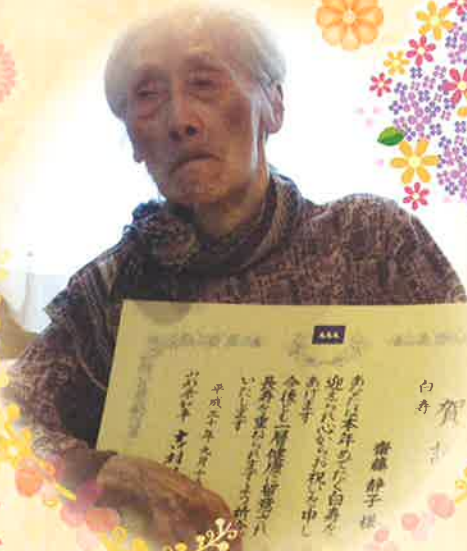 賀
白寿
齋藤靜子様
あなたは本年めでたく白寿を
迎えられ心からお祝いを申し
あげます
今後とも一層健康に留意され
長寿を重ねられますよう祈念
いたします
平成三十年九月
山形県知事 吉村